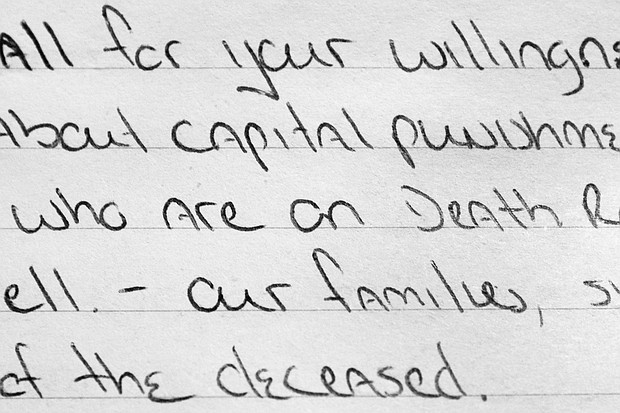 All for your willingne
About capital punishme
who are on Death R
ell. - our families, s
of the deceased.